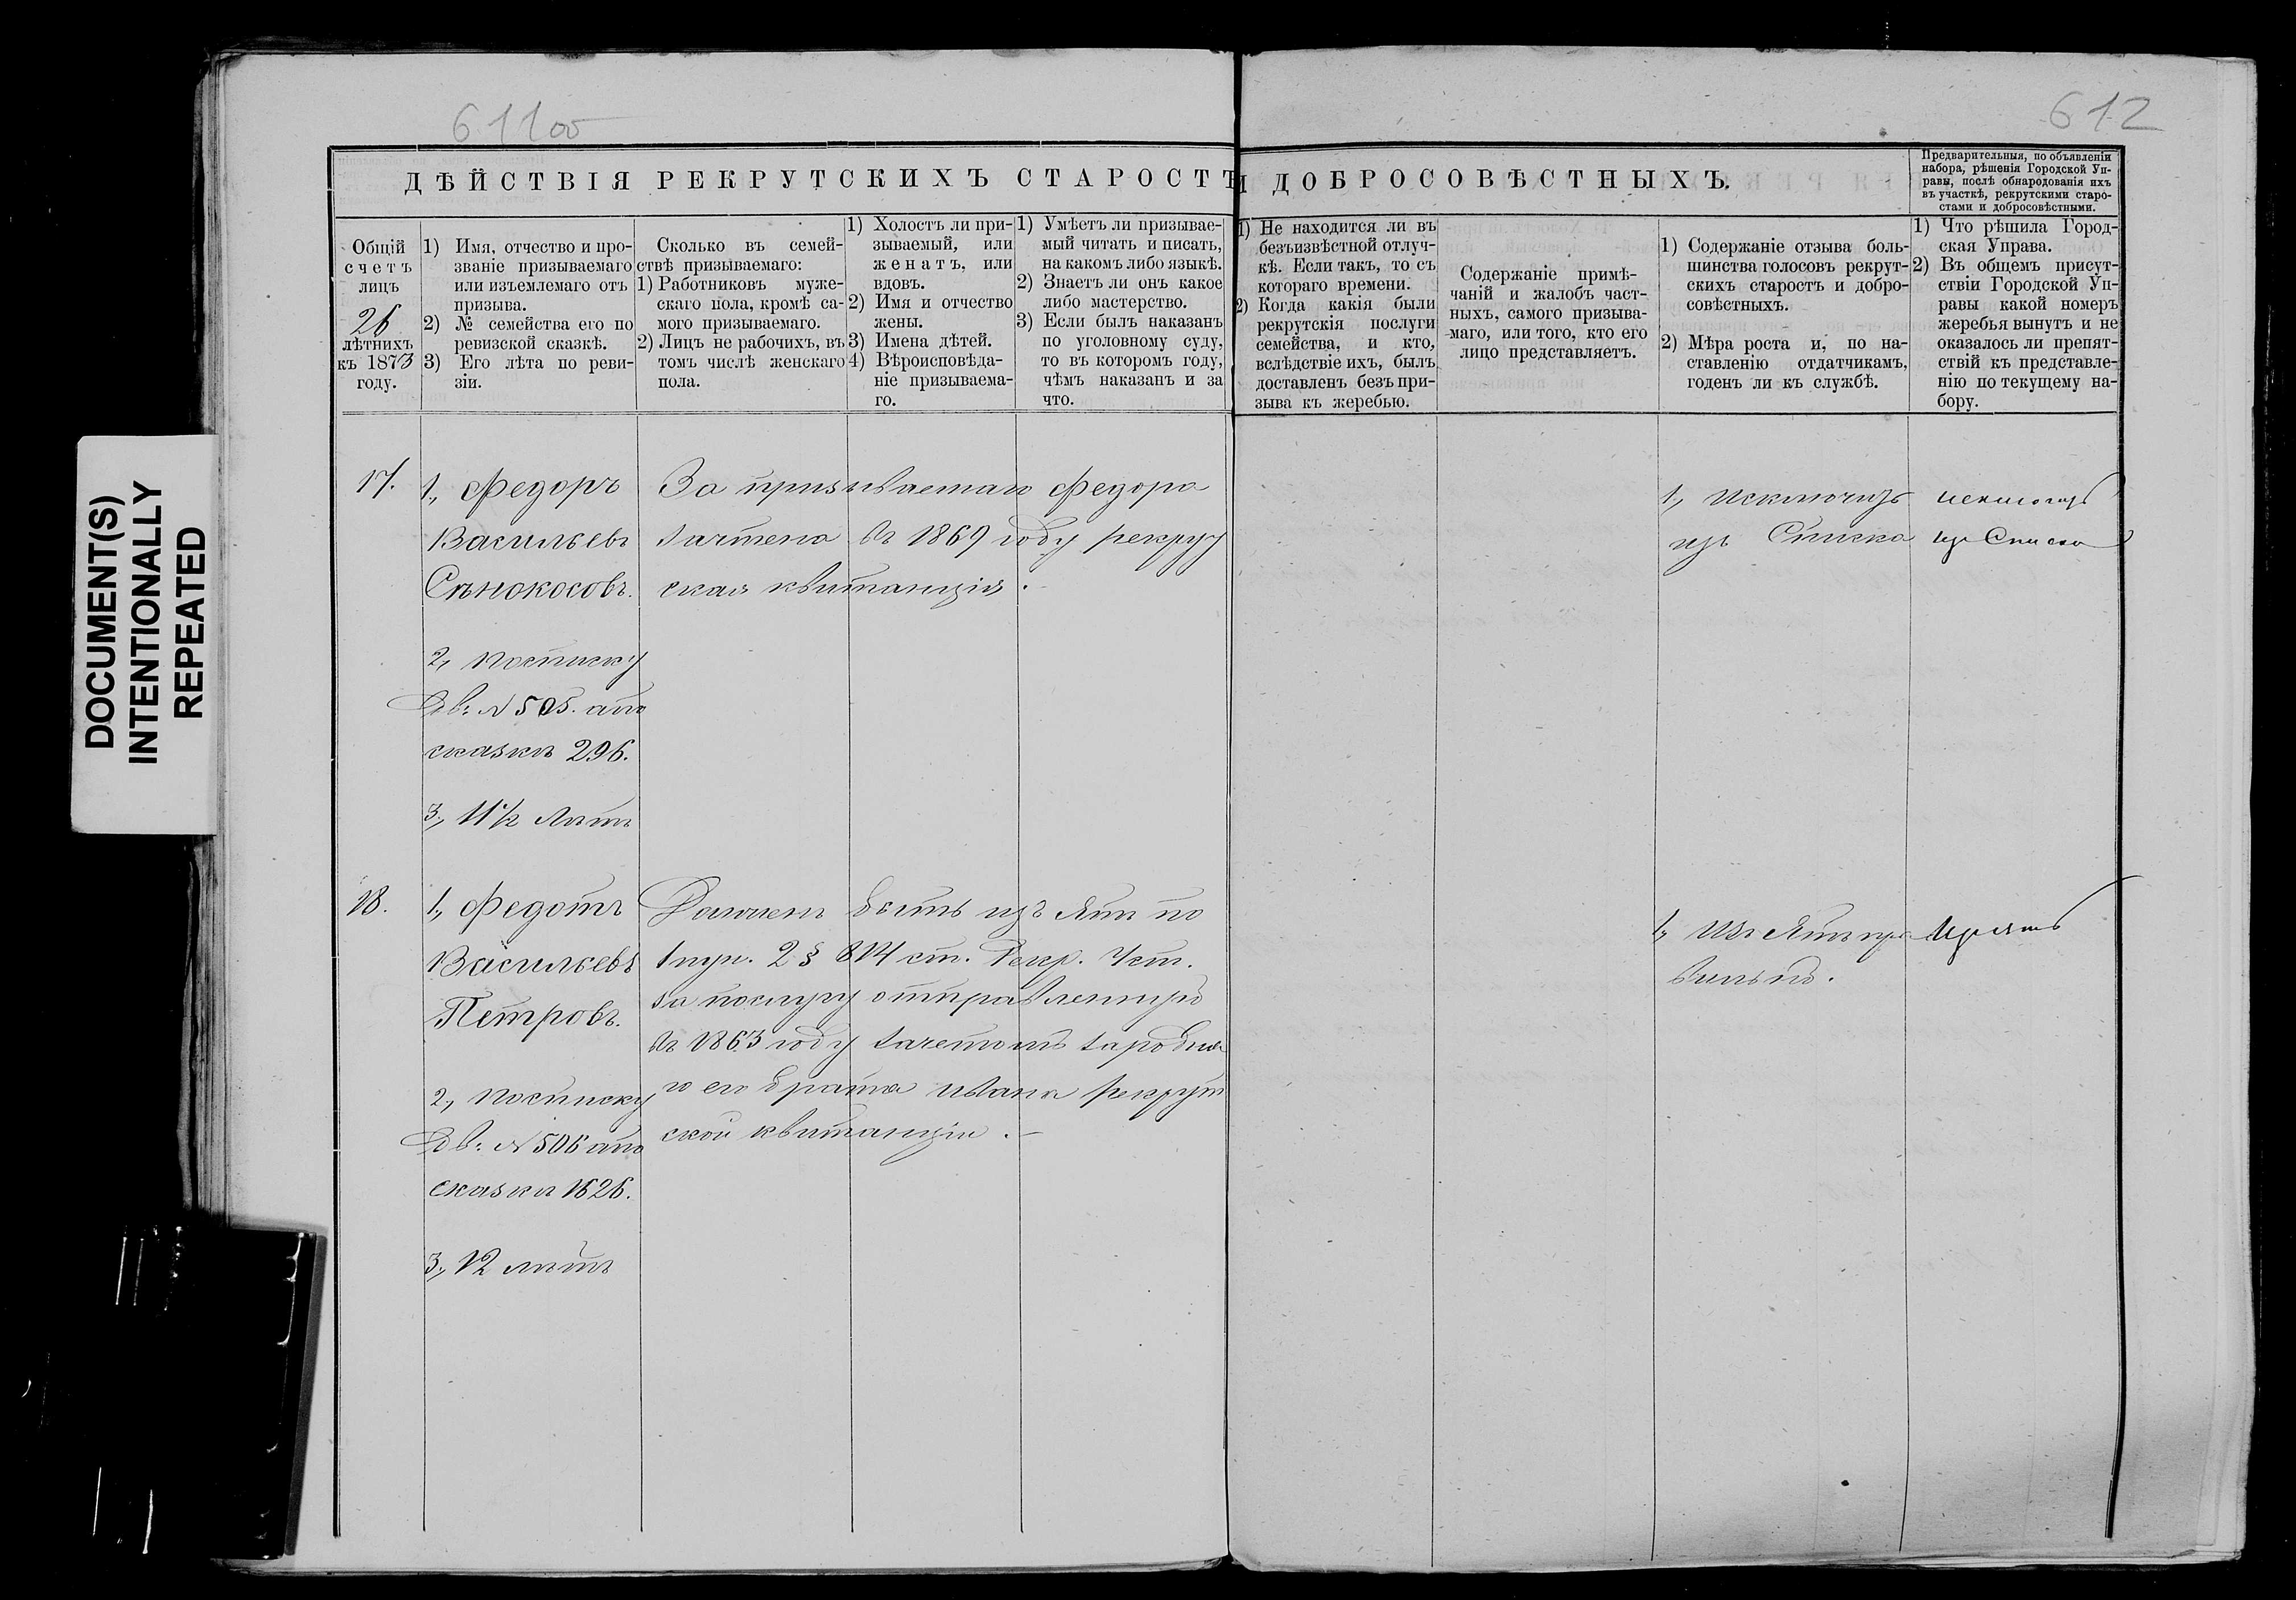 DOCUMENT(S)
INTENTIONALLY
REPEATED
611об
612
ДѢЙСТВІЯ РЕКРУТСКИХЪ СТАРОСТЪ
И ДОБРОСОВѢСТНЫХЪ.
Предварительныя, по объявленіи
набора, рѣшенія Городской Уп-
равы, послѣ обнародованія ихъ
въ участкѣ, рекрутскими старо-
стами и добросовѣстными.
Общій
счетъ
лицъ
26
лѣтнихъ
къ 1873
году.
1) Имя, отчество и про-
званіе призываемаго
или изъемлемаго отъ
призыва.
2) № семейства его по
ревизской сказкѣ.
3) Его лѣта по реви-
зіи.
Сколько въ семей-
ствѣ призываемаго:
1) Работниковъ муже-
скаго пола, кромѣ са-
мого призываемаго.
2) Лицъ не рабочихъ, въ
томъ числѣ женскаго
пола.
1) Холостъ ли при-
зываемый, или
женатъ, или
вдовъ.
2) Имя и отчество
жены.
3) Имена дѣтей.
4) Вѣроисповѣда-
ніе призываема-
го.
1) Умѣетъ ли призывае-
мый читать и писать,
на какомъ либо языкѣ.
2) Знаетъ ли онъ какое
либо мастерство.
3) Если былъ наказанъ
по уголовному суду,
то въ которомъ году,
чѣмъ наказанъ и за
что.
1) Не находится ли въ
безъизвѣстной отлуч-
кѣ. Если такъ, то съ
котораго времени.
2) Когда какія были
рекрутскія послуги
семейства, и кто,
вслѣдствіе ихъ, былъ
доставленъ безъ при-
зыва къ жеребью.
Содержаніе примѣ-
чаній и жалобъ част-
ныхъ, самого призыва-
маго, или того, кто его
лицо представляетъ.
1) Содержаніе отзыва боль-
шинства голосовъ рекрут-
скихъ старостъ и добро-
совѣстныхъ.
2) Мѣра роста и, по на-
ставленію отдатчикамъ,
годенъ ли къ службѣ.
1) Что рѣшила Город-
ская Управа.
2) Въ общемъ присут-
ствіи Городской Уп-
равы какой номеръ
жеребья вынутъ и не
оказалось ли препят-
ствій къ представле-
нію по текущему на-
бору.
17.
1., Федоръ
Васильевъ
Сѣнокосовъ.
2., По списку
Дв: № 505. апо
сказкѣ 296.
3., 11½ лѣтъ
За призываемаго Федора
зачтена въ 1869 году рекрут
ская квитанція.
1., Исключить
изъ Списка
исключить
изъ Списка
18.
1., Федотъ
Васильевъ
Петровъ.
2., По списку
Дв: № 506 апо
сказкѣ 1626.
3., 12 лѣтъ
Долженъ быть изъятъ по
1 пун. 2 § 814 ст. Рекр. Уст.
за послугу отправленную
въ 1863 году зачетомъ за родна
го его брата Ивана рекрут
ской квитанціи.
1., Изъятъ пра
вильно.
Изъять